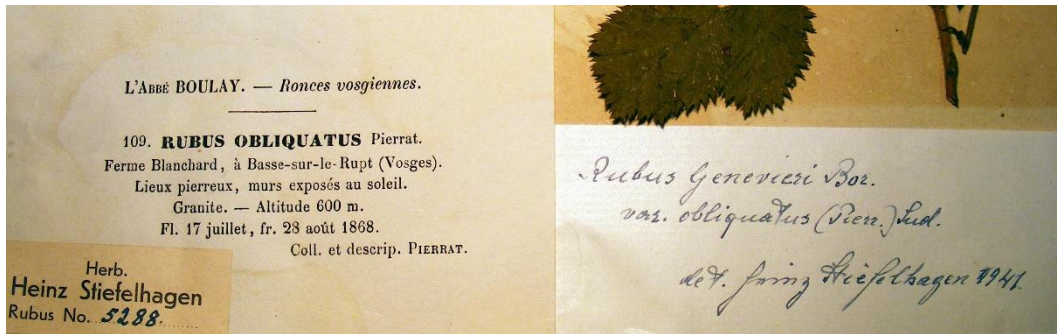 L'ABBÉ BOULAY. — Ronces vosgiennes.
109. RUBUS OBLIQUATUS Pierrat.
Ferme Blanchard, à Basse-sur-le-Rupt (Vosges).
Lieux pierreux, murs exposés au soleil.
Granite. — Altitude 600 m.
Fl. 17 juillet, fr. 28 août 1868.
Coll. et descrip. PIERRAT.
Herb.
Heinz Stiefelhagen
Rubus No. 5288.
Rubus Genevieri Bor.
var. obliquatus (Pierr.) Sud.
det. Heinz Stiefelhagen 1941.